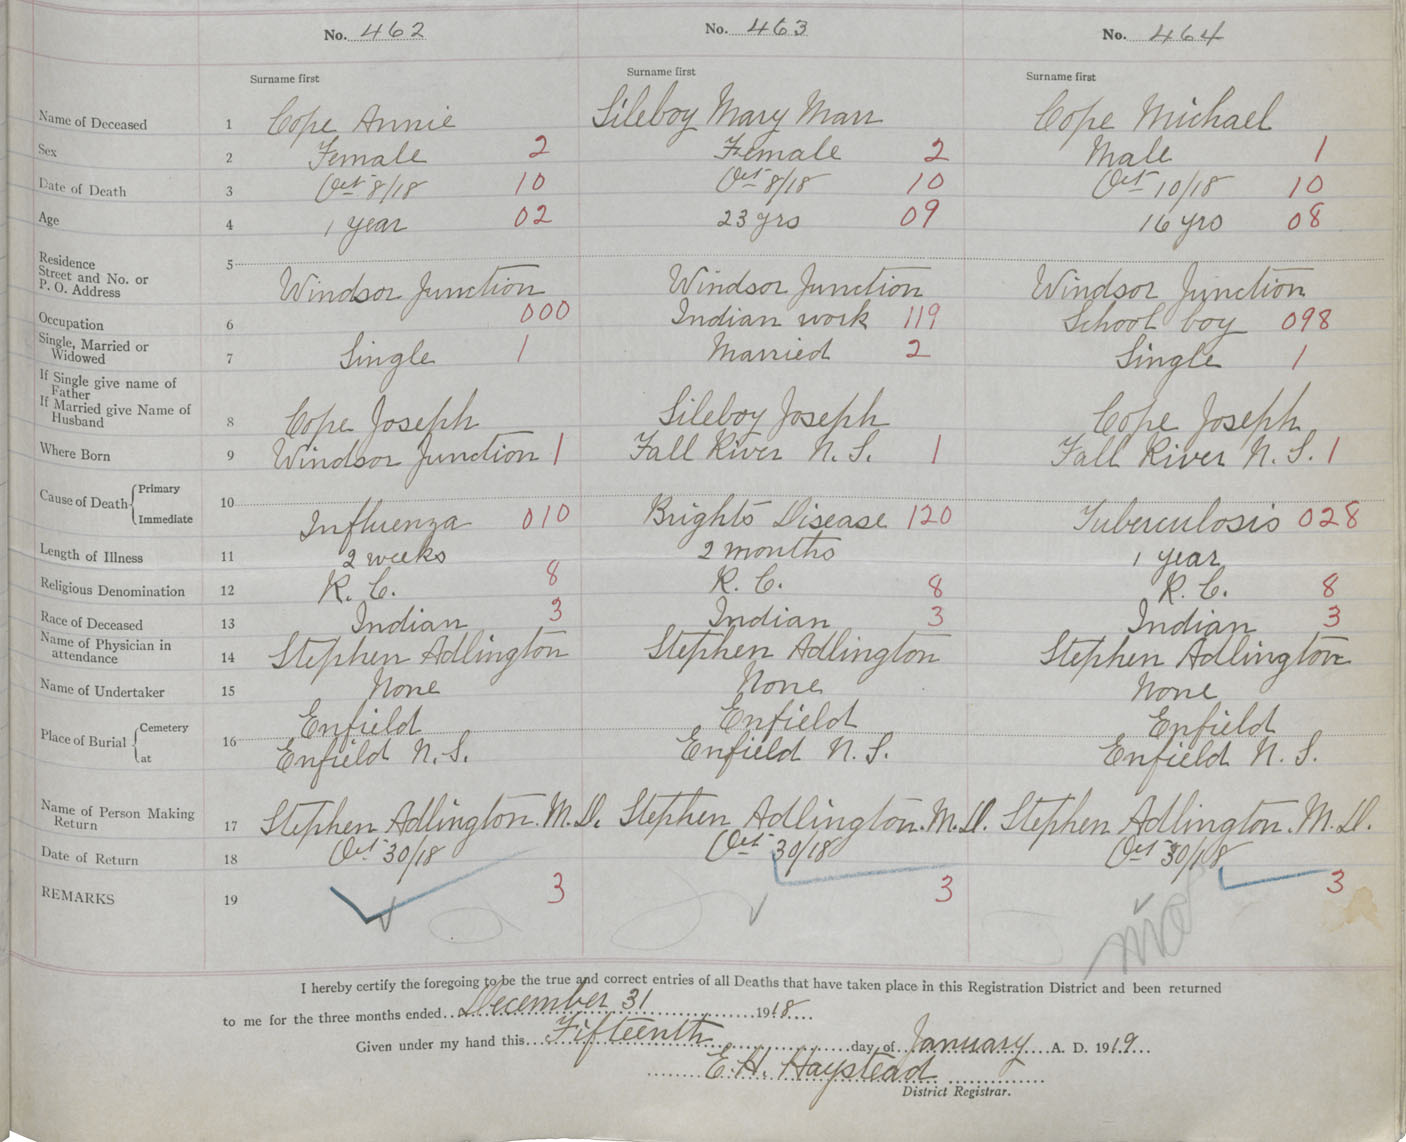 No. 462 No. 463 No. 464
Surname first Surname first Surname first
Name of Deceased 1 Cope Annie Sileboy Mary Marr Cope Michael
Sex 2 Female 2 Female 2 Male 1
Date of Death 3 Oct 8/18 10 Oct 8/18 10 Oct 10/18 10
Age 4 1 year 02 23 yrs 09 16 yrs 08
Residence
Street and No. or
P. O. Address 5 Windsor Junction Windsor Junction Windsor Junction
Occupation 6 000 Indian work 119 School boy 098
Single, Married or
Widowed 7 Single 1 Married 2 Single 1
If Single give name of
Father
If Married give Name of
Husband 8 Cope Joseph Sileboy Joseph Cope Joseph
Where Born 9 Windsor Junction 1 Fall River N. S. 1 Fall River N. S. 1
Cause of Death Primary 10
Immediate Influenza 010 Brights Disease 120 Tuberculosis 028
Length of Illness 11 2 weeks 2 months 1 year
Religious Denomination 12 R. C. 8 R. C. 8 R. C. 8
Race of Deceased 13 Indian 3 Indian 3 Indian 3
Name of Physician in
attendance 14 Stephen Adlington Stephen Adlington Stephen Adlington
Name of Undertaker 15 None None None
Place of Burial Cemetery 16 Enfield Enfield Enfield
at Enfield N. S. Enfield N. S. Enfield N. S.
Name of Person Making
Return 17 Stephen Adlington. M. D. Stephen Adlington. M. D. Stephen Adlington. M. D.
Date of Return 18 Oct 30/18 Oct 30/18 Oct 30/18
REMARKS 19 3 3 3
I hereby certify the foregoing to be the true and correct entries of all Deaths that have taken place in this Registration District and been returned
to me for the three months ended December 31 1918
Given under my hand this Fifteenth day of January A. D. 1919
E. H. Haystead
District Registrar.